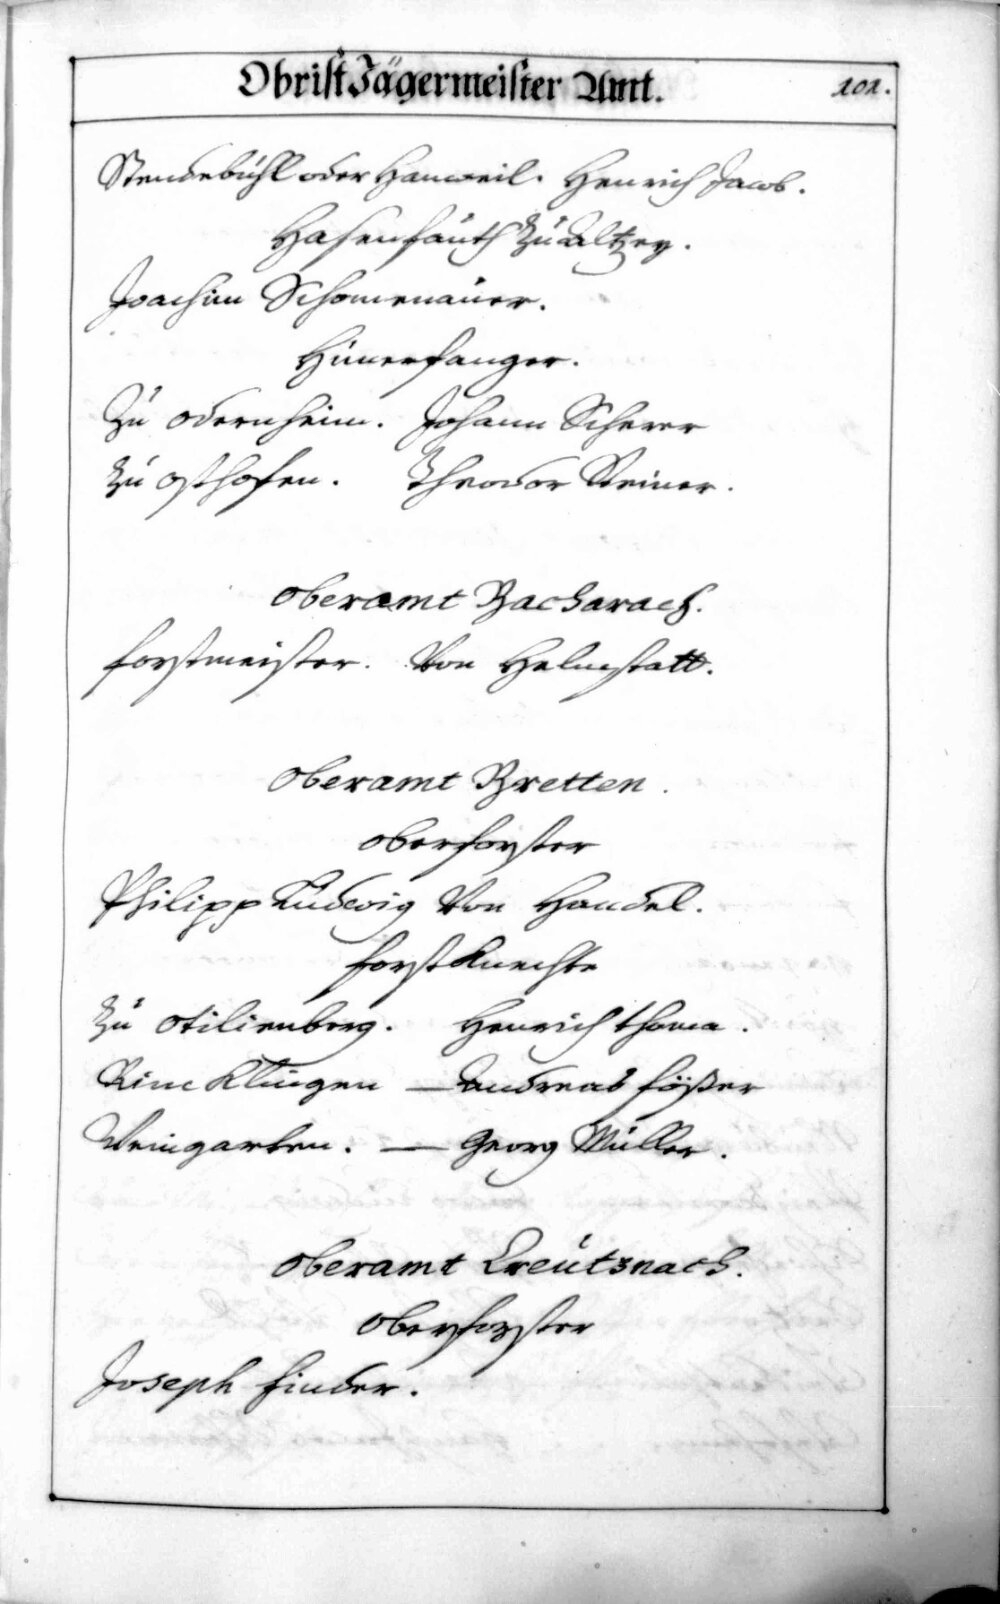 Obrist Jägermeister Amt. 101.
Stendebühl oder Hanweil. Henrich Jacob.
Hasenfäuth zu Altzey.
Joachim Schomenauer.
Hünerfanger.
Zu Odernheim. Johann Scherer
Zu Osthofen. Theodor Steiner.
Oberamt Bacharach.
Forstmeister. Von Helmstatt.
Oberamt Bretten.
Oberforster
Philipp Ludwig Von Handel.
Forst Knechte
Zu Otilienberg. Henrich Thoma.
Rine Klingen — Andreas Fößer
Weingarten. — Georg Müller.
Oberamt Creutznach.
Oberforster
Joseph Finder.